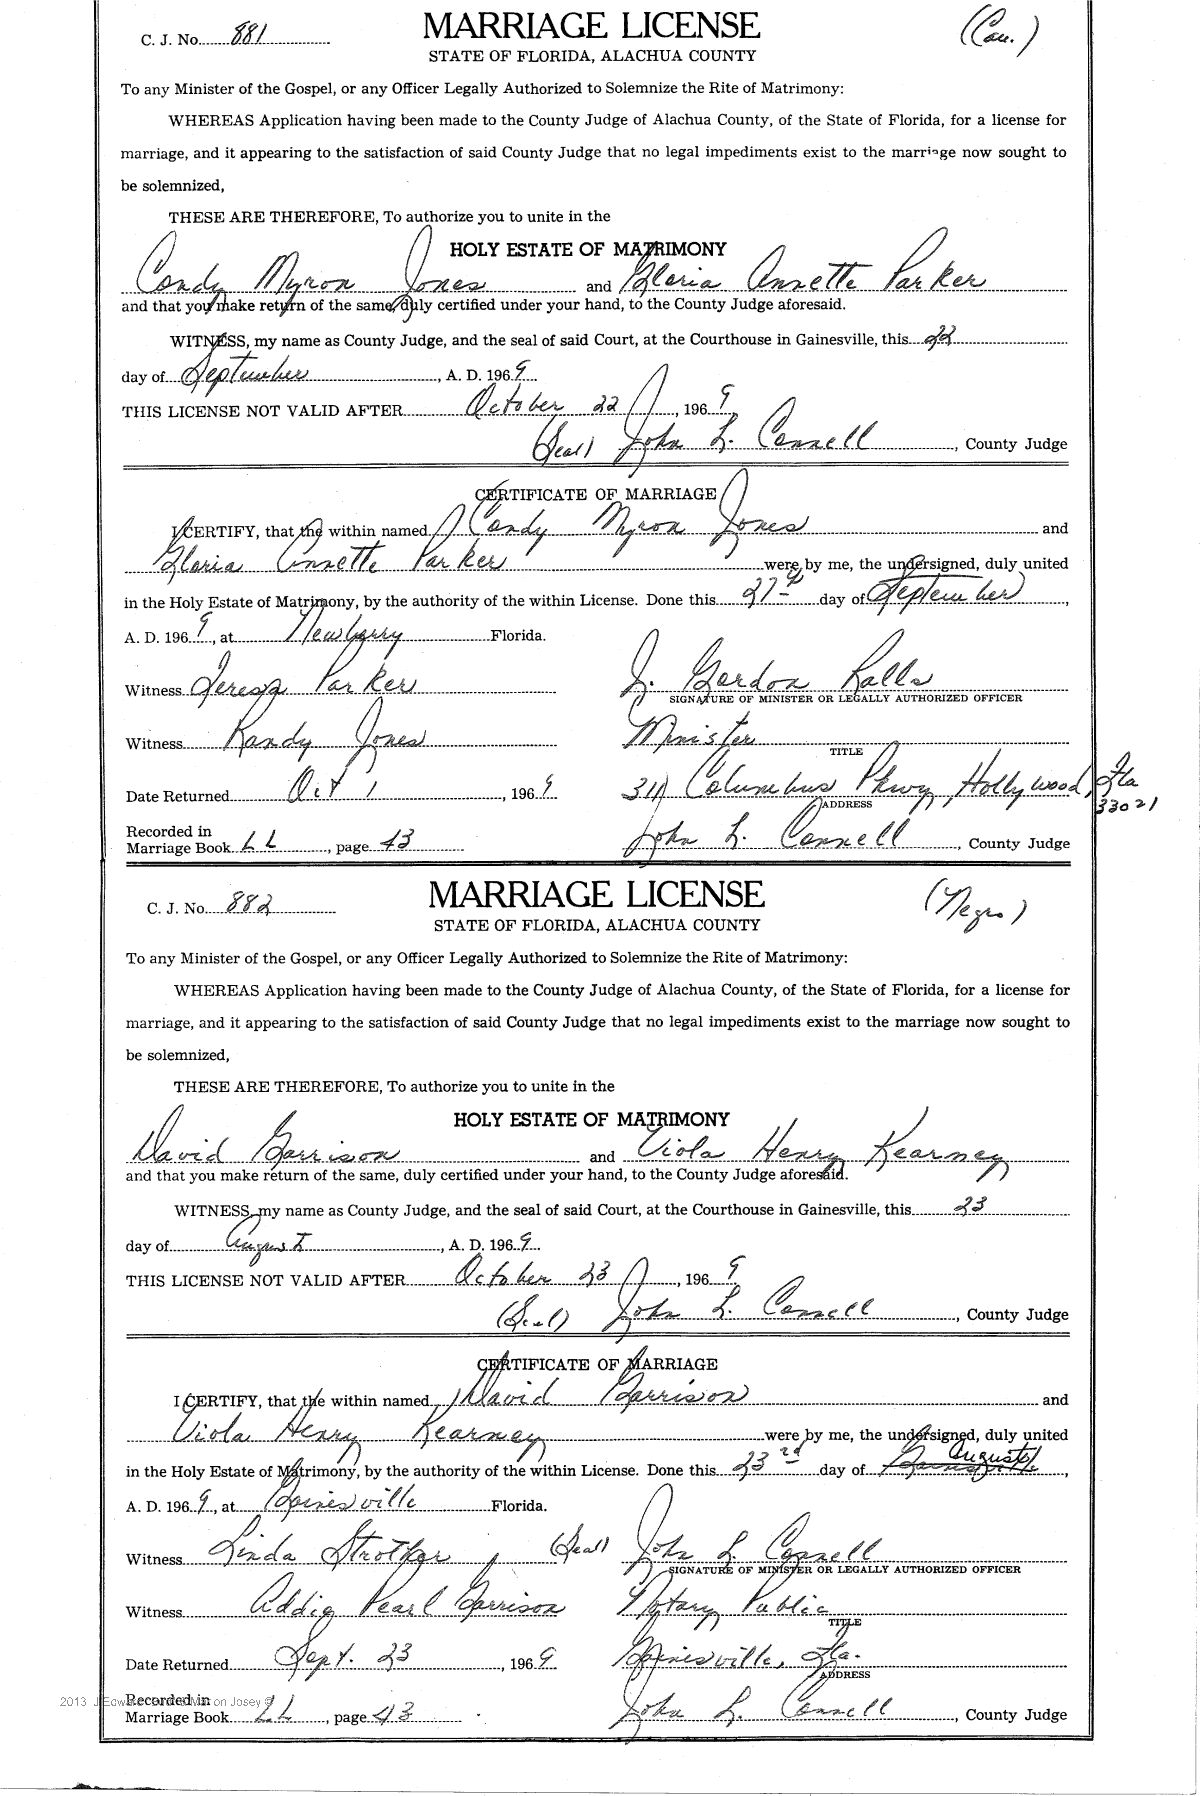 C. J. No. 881 MARRIAGE LICENSE (Cau.)
STATE OF FLORIDA, ALACHUA COUNTY
To any Minister of the Gospel, or any Officer Legally Authorized to Solemnize the Rite of Matrimony:
WHEREAS Application having been made to the County Judge of Alachua County, of the State of Florida, for a license for
marriage, and it appearing to the satisfaction of said County Judge that no legal impediments exist to the marriage now sought to
be solemnized,
THESE ARE THEREFORE, To authorize you to unite in the
HOLY ESTATE OF MATRIMONY
Condy Myron Jones and Gloria Annette Parker
and that you make return of the same, duly certified under your hand, to the County Judge aforesaid.
WITNESS, my name as County Judge, and the seal of said Court, at the Courthouse in Gainesville, this 22
day of September, A. D. 1969
THIS LICENSE NOT VALID AFTER October 22, 1969
(Seal) John L. Connell, County Judge
CERTIFICATE OF MARRIAGE
I CERTIFY, that the within named Condy Myron Jones and
Gloria Annette Parker were by me, the undersigned, duly united
in the Holy Estate of Matrimony, by the authority of the within License. Done this 27th day of September,
A. D. 1969, at Newberry Florida.
Witness Teresa Parker J. Gordon Ralls
SIGNATURE OF MINISTER OR LEGALLY AUTHORIZED OFFICER
Witness Randy Jones Minister
TITLE
Date Returned Oct 1, 1969 311 Columbus Pkwy, Hollywood, Fla
33021
ADDRESS
Recorded in
Marriage Book LL, page 43 John L. Connell, County Judge
C. J. No. 882 MARRIAGE LICENSE (Negro)
STATE OF FLORIDA, ALACHUA COUNTY
To any Minister of the Gospel, or any Officer Legally Authorized to Solemnize the Rite of Matrimony:
WHEREAS Application having been made to the County Judge of Alachua County, of the State of Florida, for a license for
marriage, and it appearing to the satisfaction of said County Judge that no legal impediments exist to the marriage now sought to
be solemnized,
THESE ARE THEREFORE, To authorize you to unite in the
HOLY ESTATE OF MATRIMONY
David Garrison and Viola Henry Kearney
and that you make return of the same, duly certified under your hand, to the County Judge aforesaid.
WITNESS, my name as County Judge, and the seal of said Court, at the Courthouse in Gainesville, this 23
day of August, A. D. 1969
THIS LICENSE NOT VALID AFTER October 23, 1969
(Seal) John L. Connell, County Judge
CERTIFICATE OF MARRIAGE
I CERTIFY, that the within named David Garrison and
Viola Henry Kearney were by me, the undersigned, duly united
in the Holy Estate of Matrimony, by the authority of the within License. Done this 23rd day of August,
A. D. 1969, at Gainesville Florida.
Witness Linda Strotker (Seal) John L. Connell
SIGNATURE OF MINISTER OR LEGALLY AUTHORIZED OFFICER
Witness Addie Pearl Garrison Notary Public
TITLE
Date Returned Sept. 23, 1969 Gainesville, Fla.
ADDRESS
Recorded in
Marriage Book LL, page 43 John L. Connell, County Judge